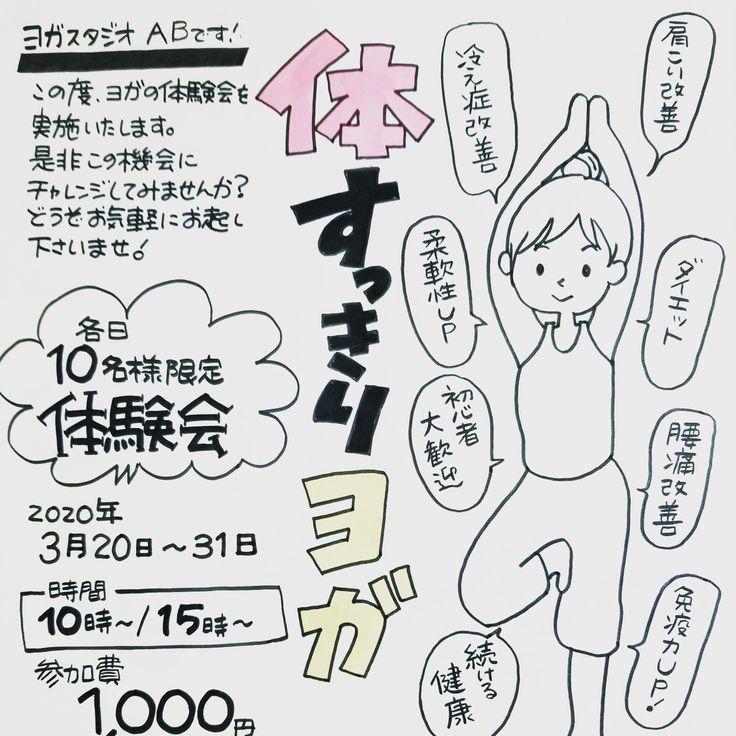 ヨガスタジオ ABです!
この度、ヨガの体験会を
実施いたします。
是非この機会に
チャレンジしてみませんか?
どうぞお気軽にお起し
下さいませ!
体すっきりヨガ
各日
10名様限定
体験会
2020年
3月20日～31日
時間
10時～/15時～
参加費
1,000円
肩こり改善
冷え症改善
ダイエット
柔軟性UP
初心者
大歓迎
腰痛改善
免疫力UP!
続ける
健康